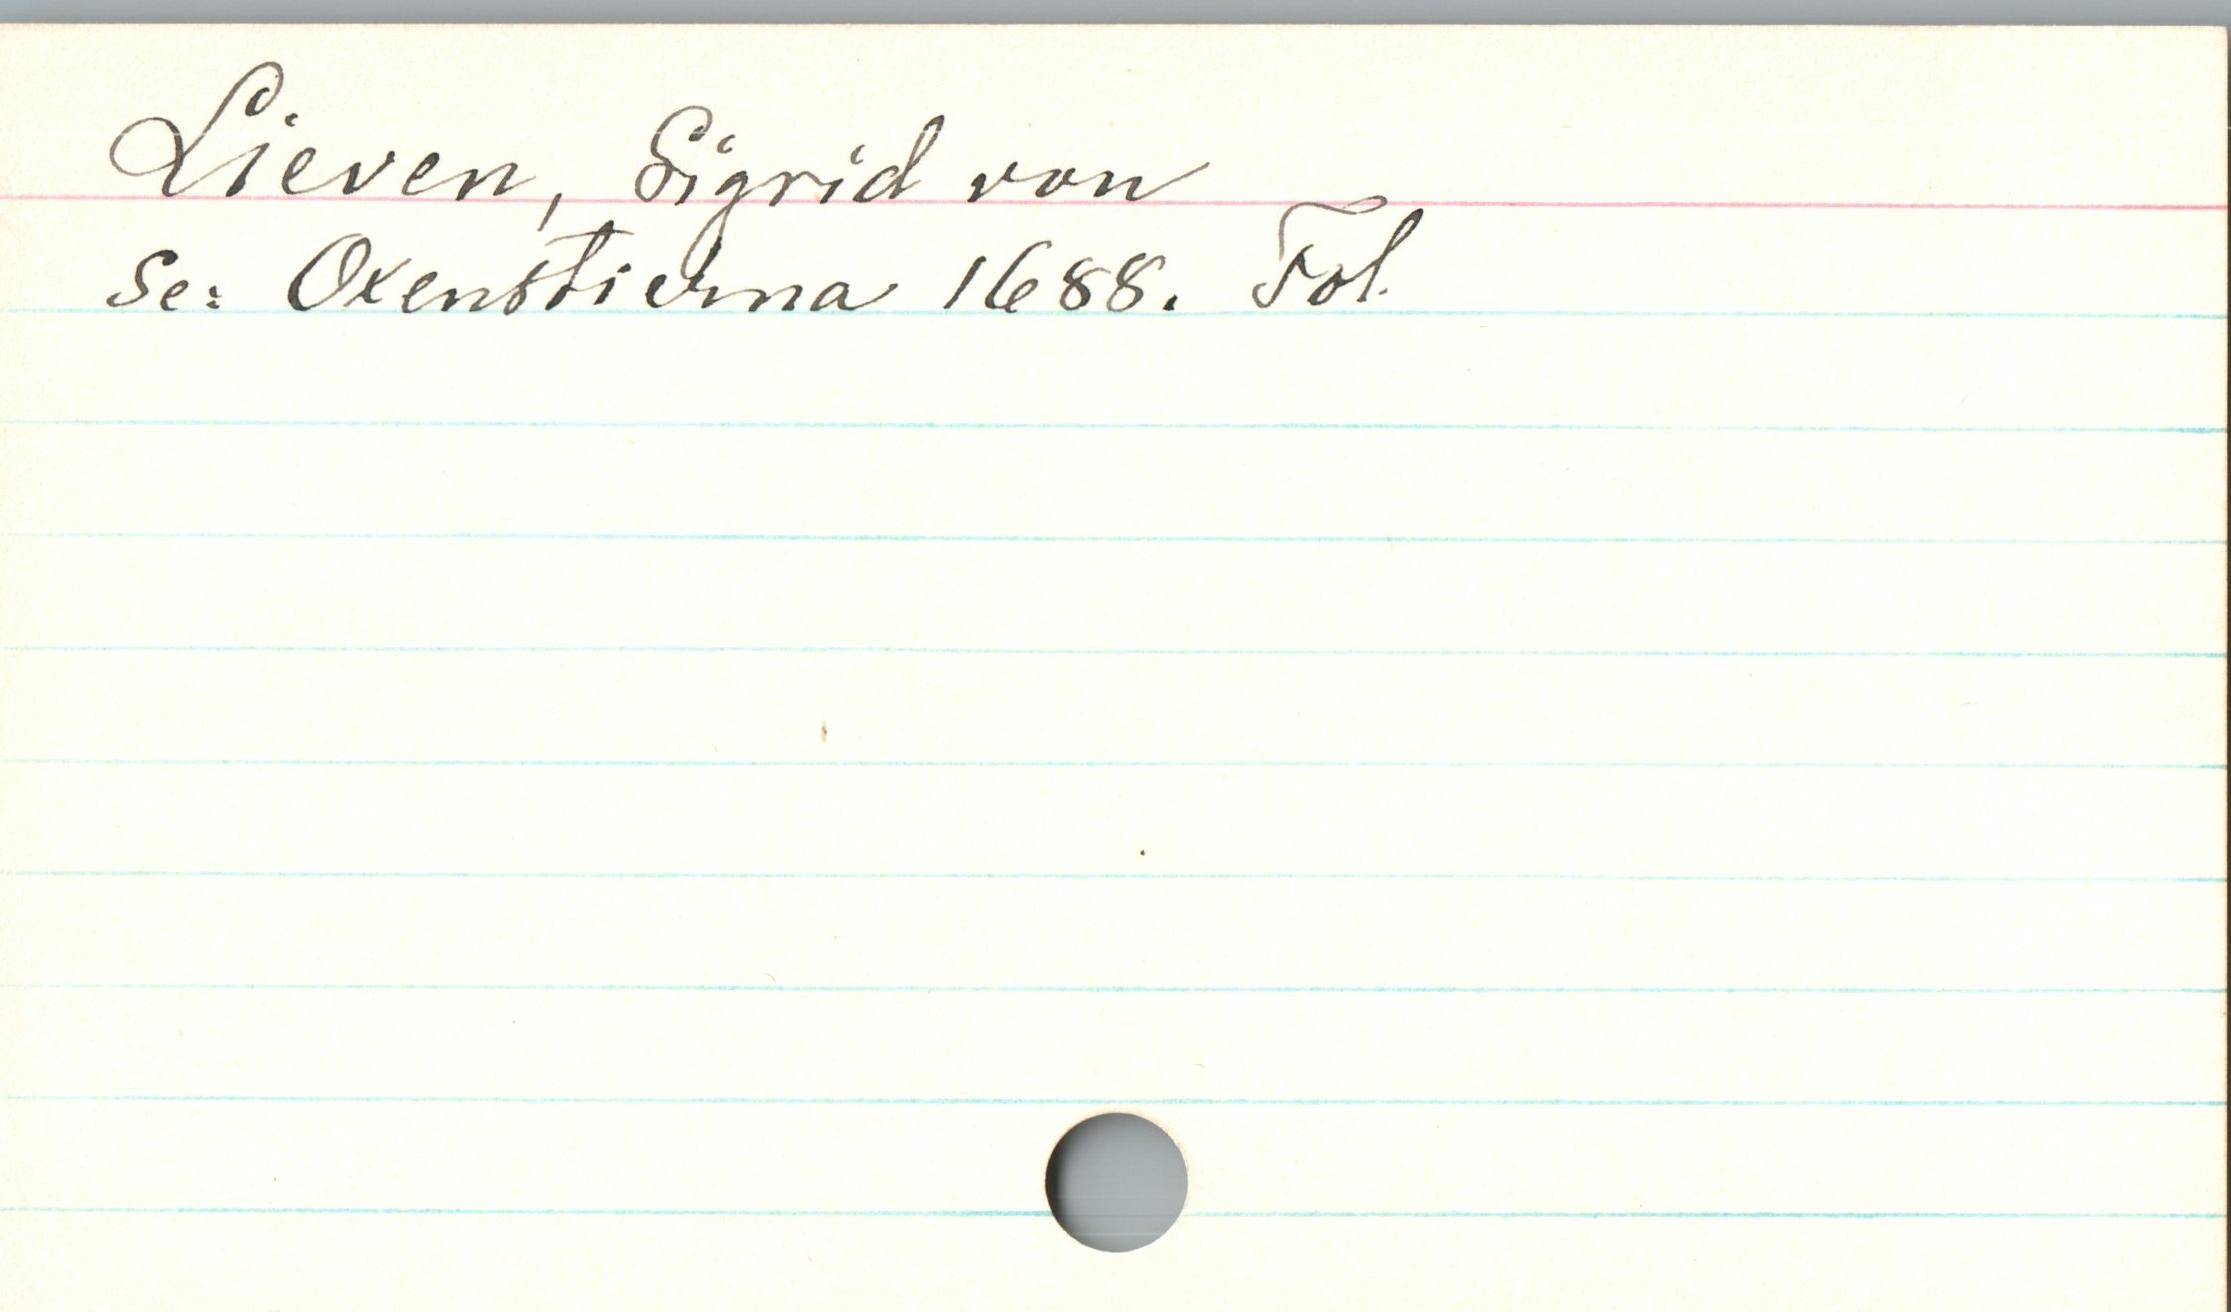 Lieven, Sigrid von
Se: Oxenstierna 1688. Fol.